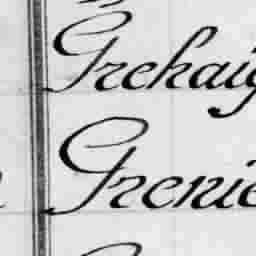 Grehaig
Grenie